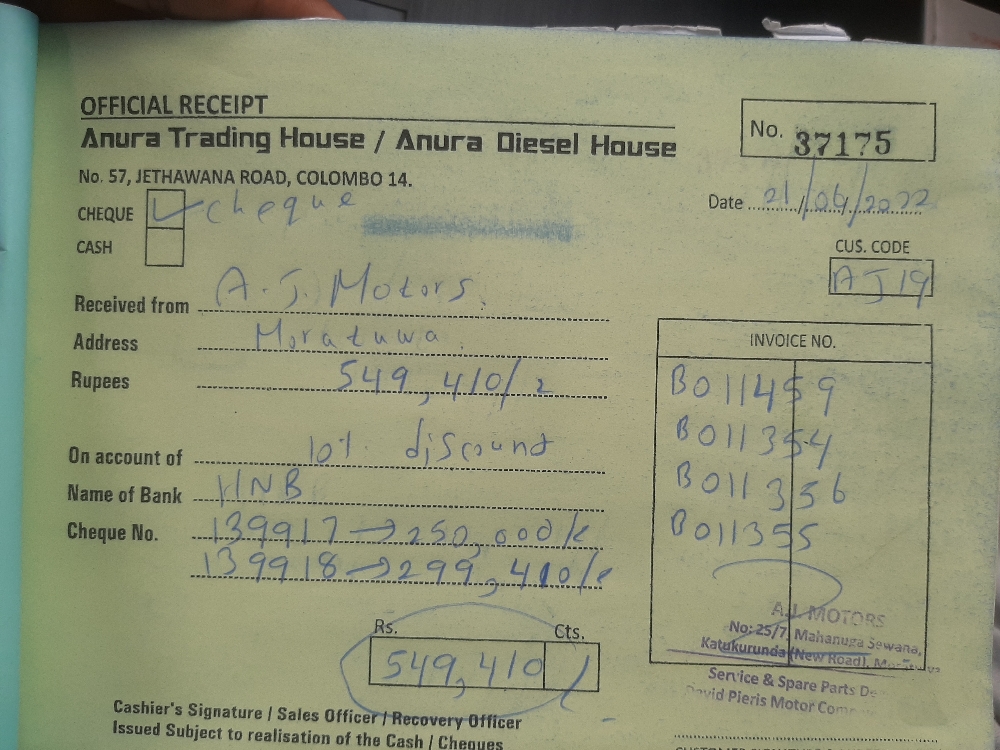 OFFICIAL RECEIPT
Anura Trading House / Anura Diesel House
No. 37175
No. 57, JETHAWANA ROAD, COLOMBO 14.
Date 21/06/2022
CHEQUE cheque
CASH
CUS. CODE
AJ19
Received from A.J. Motors.
Address Moratuwa.
Rupees 549,410/=
On account of 10% discount
Name of Bank HNB
Cheque No. 139917 → 250,000/=
139918 → 299,410/=
INVOICE NO.
B011459
B011354
B011356
B011355
A.J. MOTORS
No: 25/7, Mahanuga Sewana,
Katukurunda (New Road),
Service & Spare Parts
David Pieris Motor
Rs. Cts.
549,410 /
Cashier's Signature / Sales Officer / Recovery Officer
Issued Subject to realisation of the Cash / Cheques